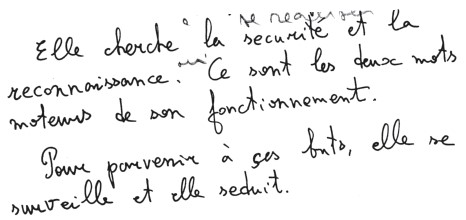 Elle cherche la securité et la
reconnaissance. Ce sont les deux mots
moteurs de son fonctionnement.
Pour parvenir à ces buts, elle se
surveille et elle seduit.